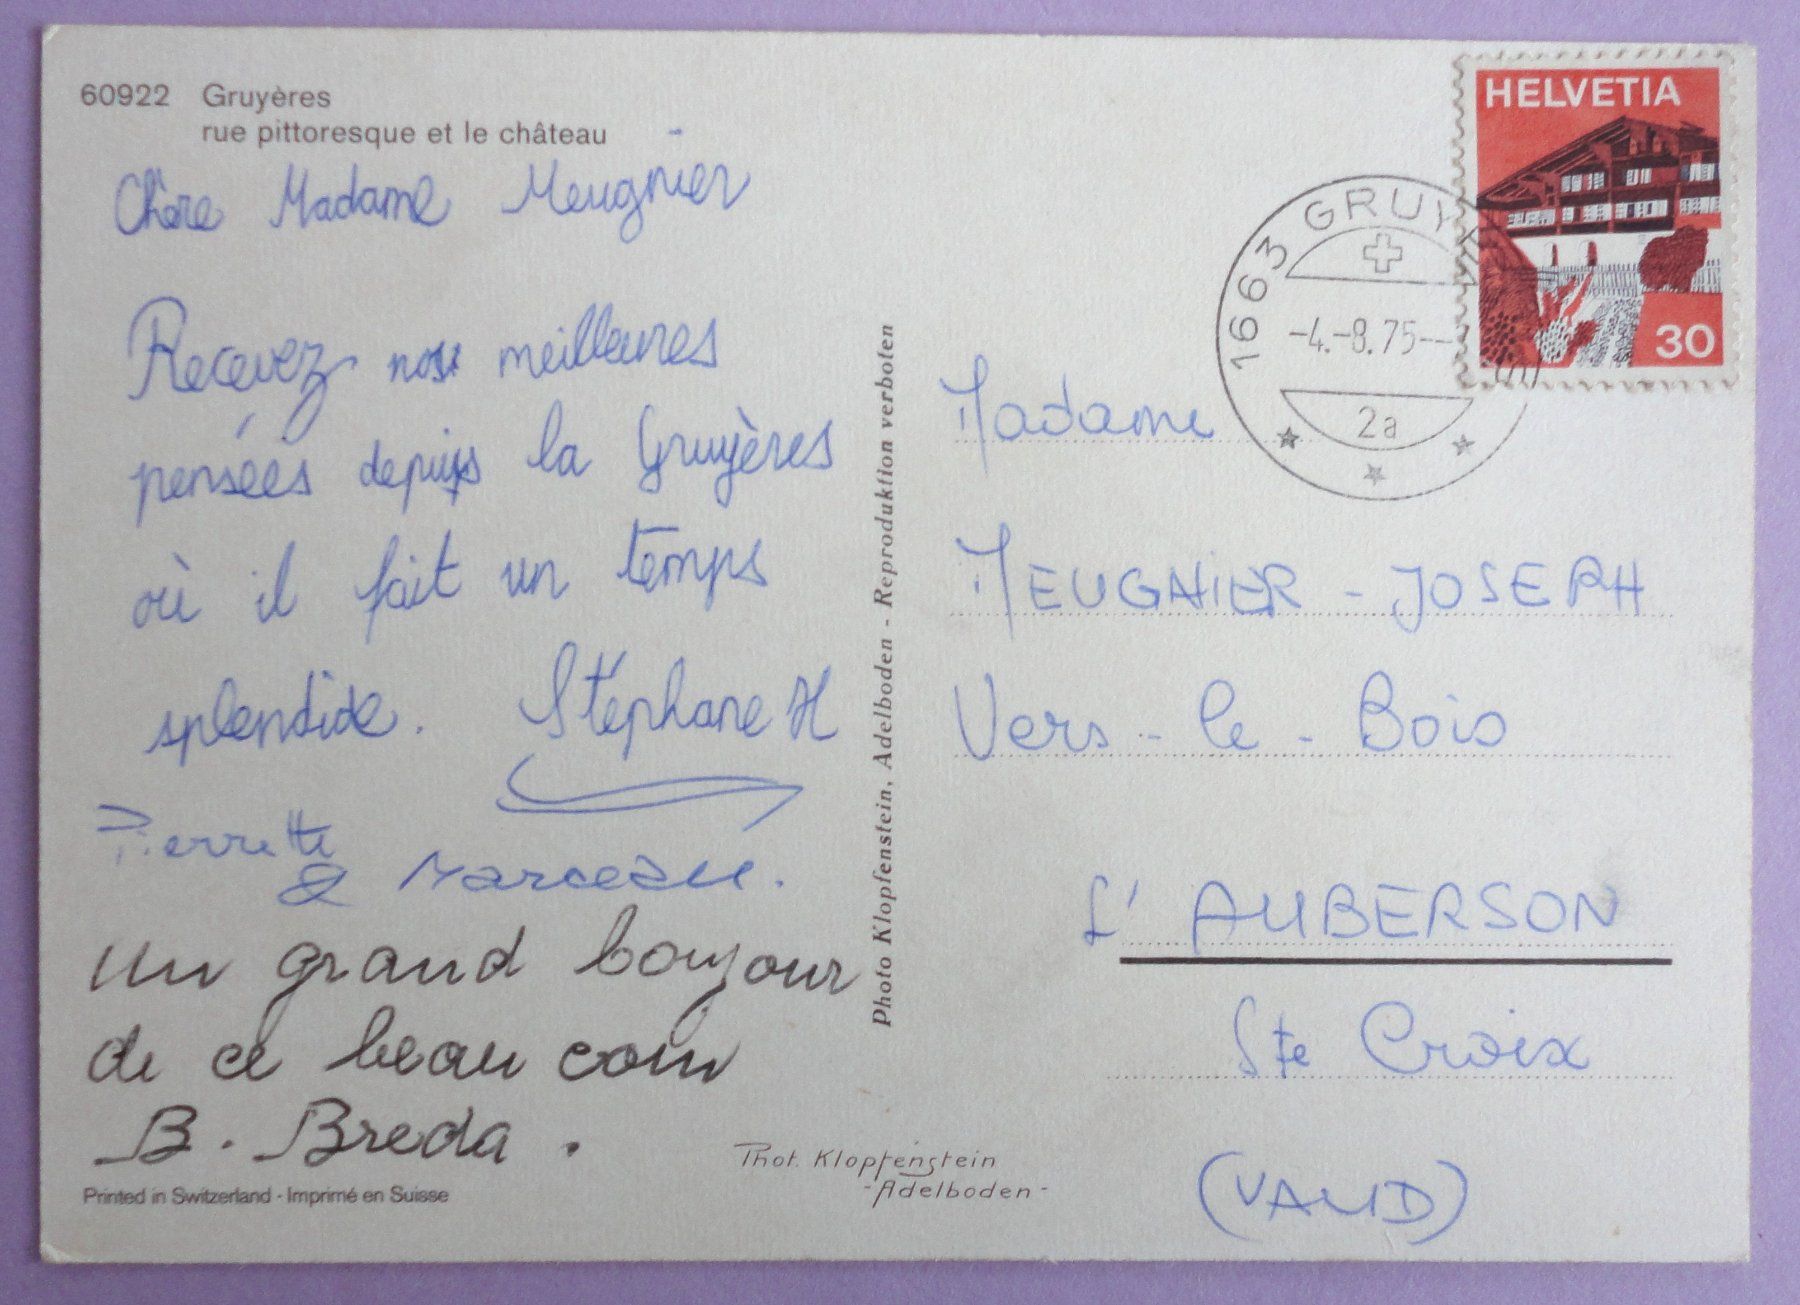 60922 Gruyères
rue pittoresque et le château
Chère Madame Meugnier
Recevez nos meilleures
pensées depuis la Gruyères
où il fait un temps
splendide. Stéphane H
Pierrette
& Marceau.
un grand boujour
de ce beau coin
B. Breda.
Printed in Switzerland - Imprimé en Suisse
Photo Klopfenstein, Adelboden - Reproduktion verboten
Phot. Klopfenstein
-Adelboden-
HELVETIA
30
1663 GRUYÈRES
-4.-8.75--
2a
Madame
MEUGNIER - JOSEPH
Vers - le - Bois
L'AUBERSON
Ste Croix
(VAUD)